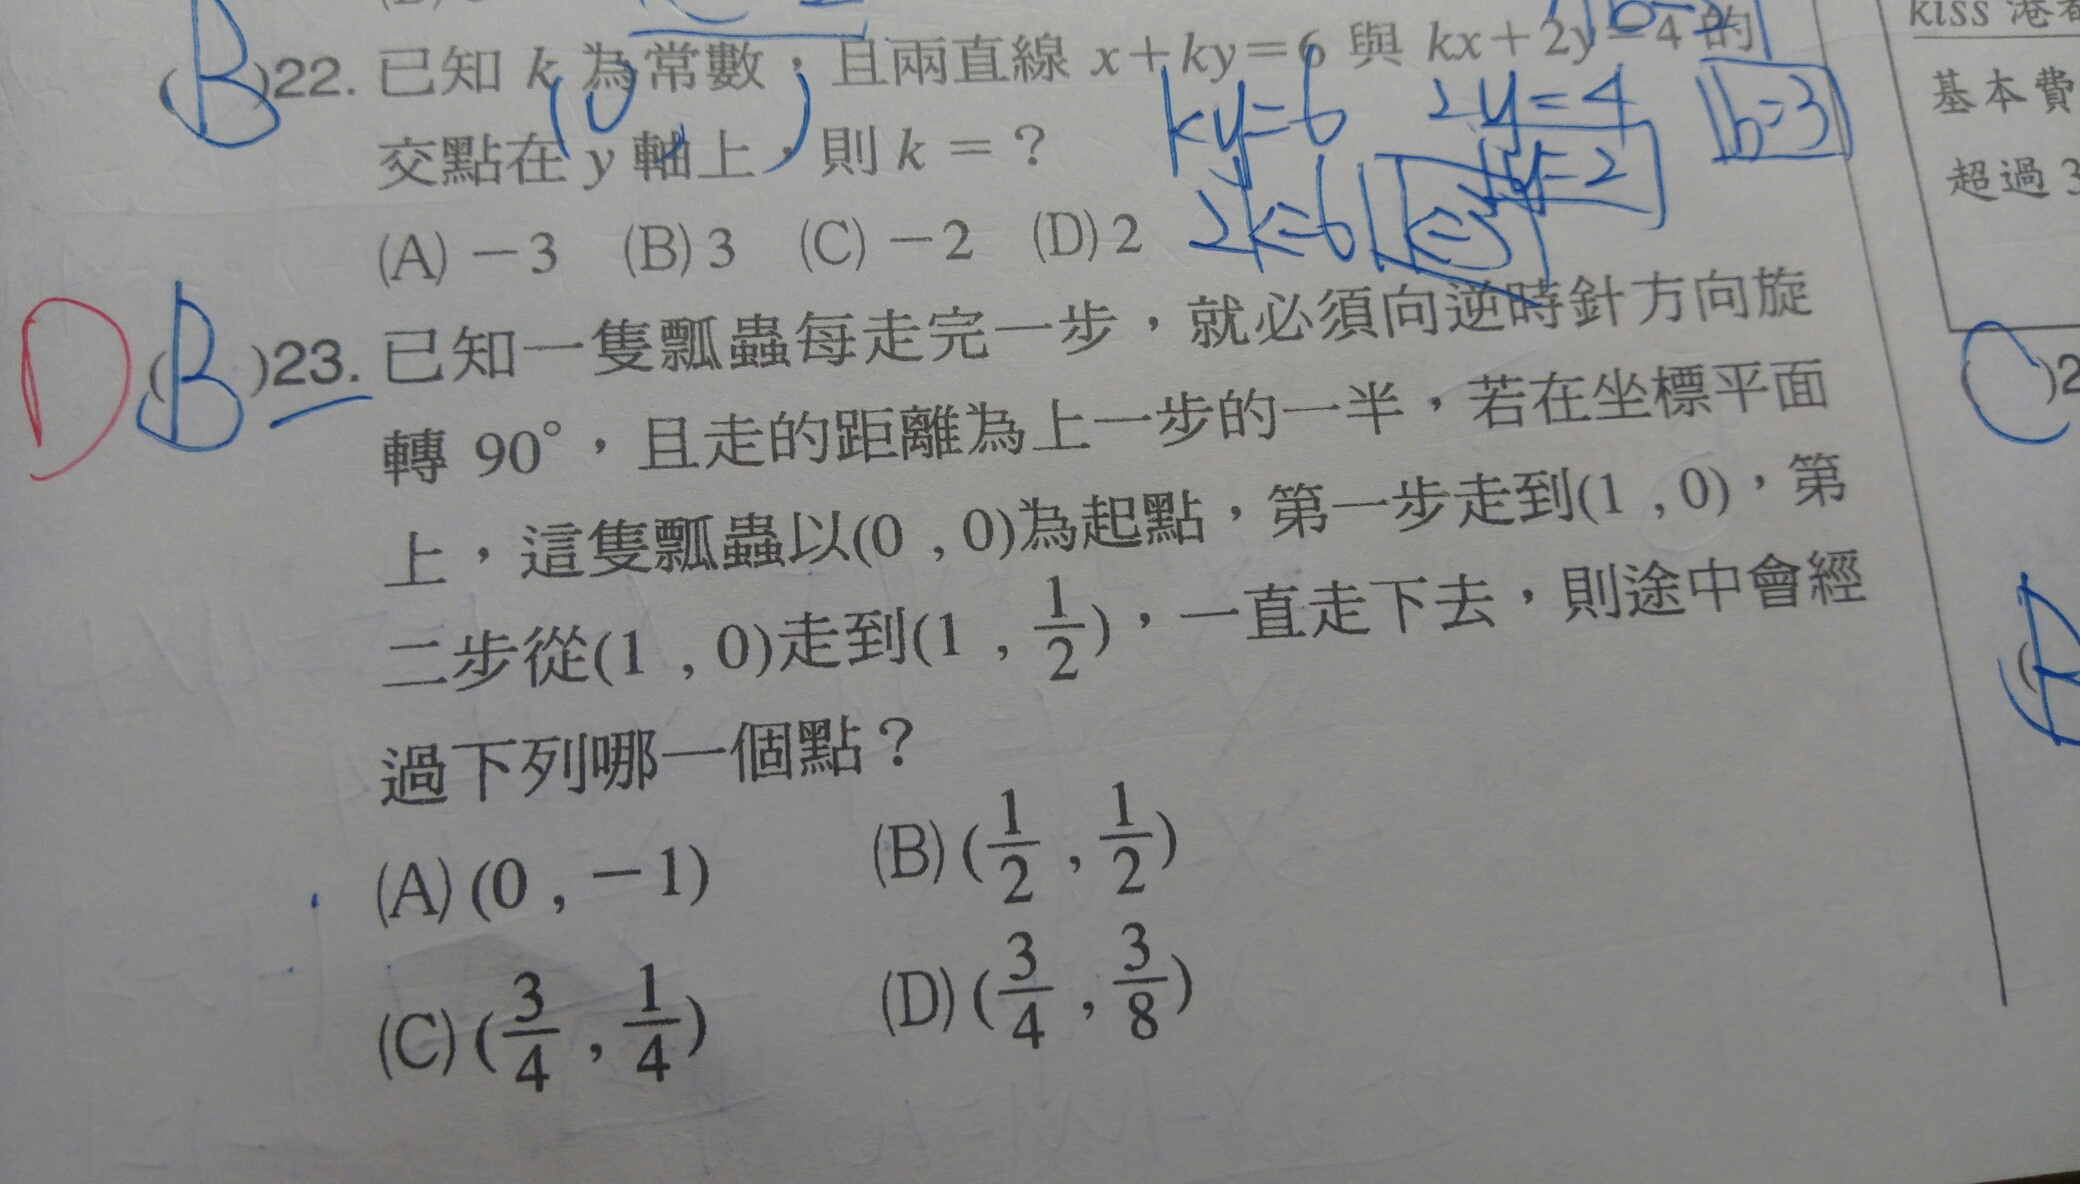 (B)22. 已知 k 為常數，且兩直線 x+ky=6 與 kx+2y=4 的
交點在 y 軸上，則 k = ?
(A) -3 (B) 3 (C) -2 (D) 2
ky=6
2k=6
k=3
2y=4
y=2
b=3
D
(B)23. 已知一隻瓢蟲每走完一步，就必須向逆時針方向旋
轉 90°，且走的距離為上一步的一半，若在坐標平面
上，這隻瓢蟲以(0 , 0)為起點，第一步走到(1 , 0)，第
二步從(1 , 0)走到(1 , 1/2)，一直走下去，則途中會經
過下列哪一個點？
(A) (0 , -1) (B) (1/2 , 1/2)
(C) (3/4 , 1/4) (D) (3/4 , 3/8)
kiss 港
基本費
超過 3
)2